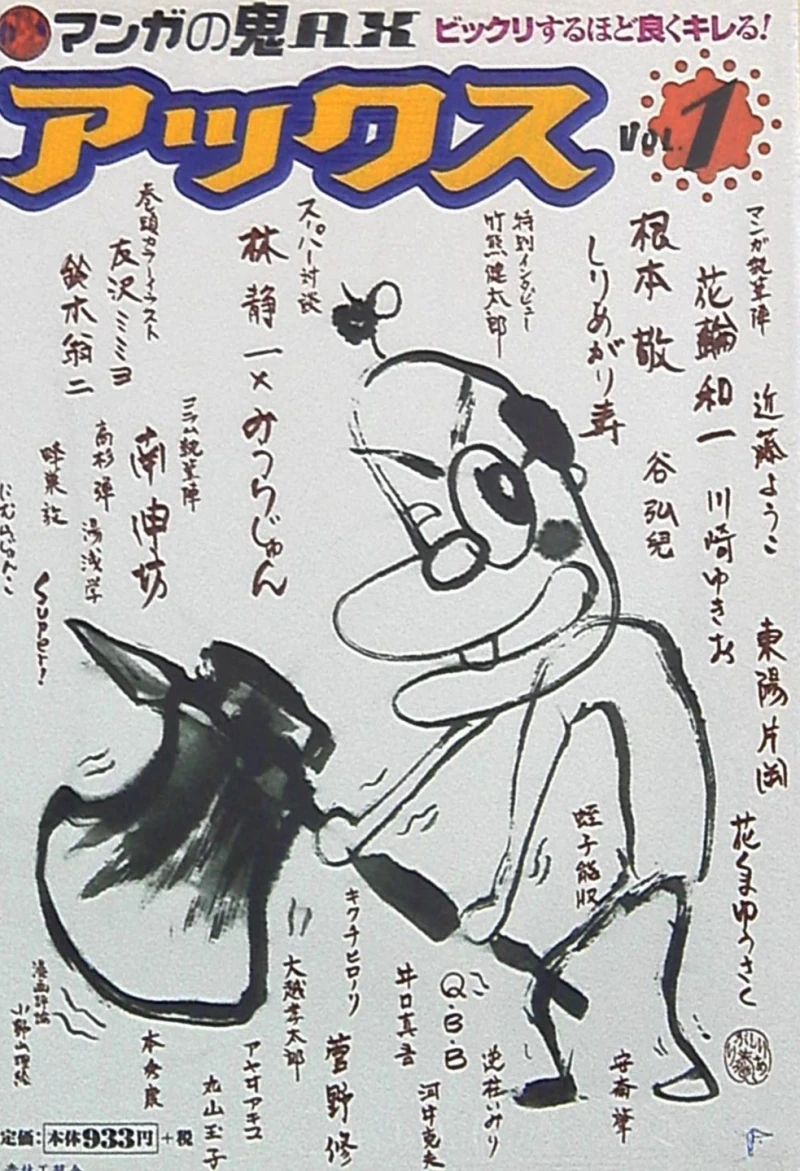 マンガの鬼AX ビックリするほど良くキレる!
アックス
Vol.1
マンガ執筆陣
近藤ようこ
東陽片岡
花くまゆうさく
花輪和一
川崎ゆきお
根本敬
谷弘兒
しりあがり寿
特別インタビュー
竹熊健太郎
スーパー対談
林静一×みうらじゅん
巻頭カラーイラスト
友沢ミミヨ
鈴木翁二
コラム執筆陣
南伸坊
高杉弾
湯浅学
Super!
蛭子能収
安斎肇
逆柱いみり
Q.B.B
井口真吾
河井克夫
キクチヒロノリ
菅野修
大越孝太郎
アヤオアキコ
丸山玉子
本秀康
漫画評論
定価:本体933円+税